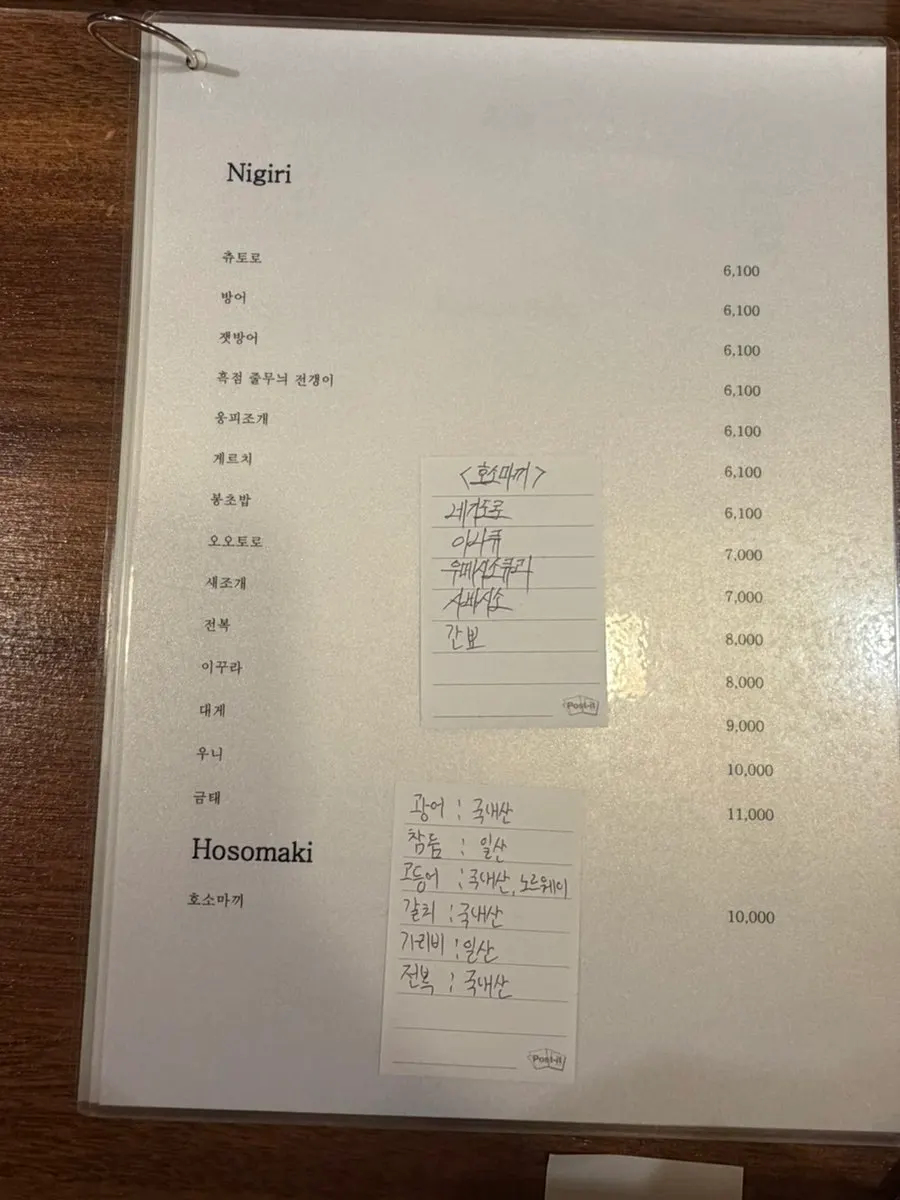 Nigiri
츄토로 6,100
방어 6,100
잿방어 6,100
흑점 줄무늬 전갱이 6,100
웅피조개 6,100
게르치 6,100
봉초밥 6,100
오오토로 7,000
새조개 7,000
전복 8.000
이꾸라 8,000
대게 9,000
우니 10,000
금태 11,000
Hosomaki
호소마끼 10,000
<호소마끼>
네기도로
아나큐
우메시소큐리
사바시소
간뾰
Post-it
광어 : 국내산
참돔 : 일산
고등어 : 국내산, 노르웨이
갈치 : 국내산
가리비 : 일산
전복 : 국내산
Post-it